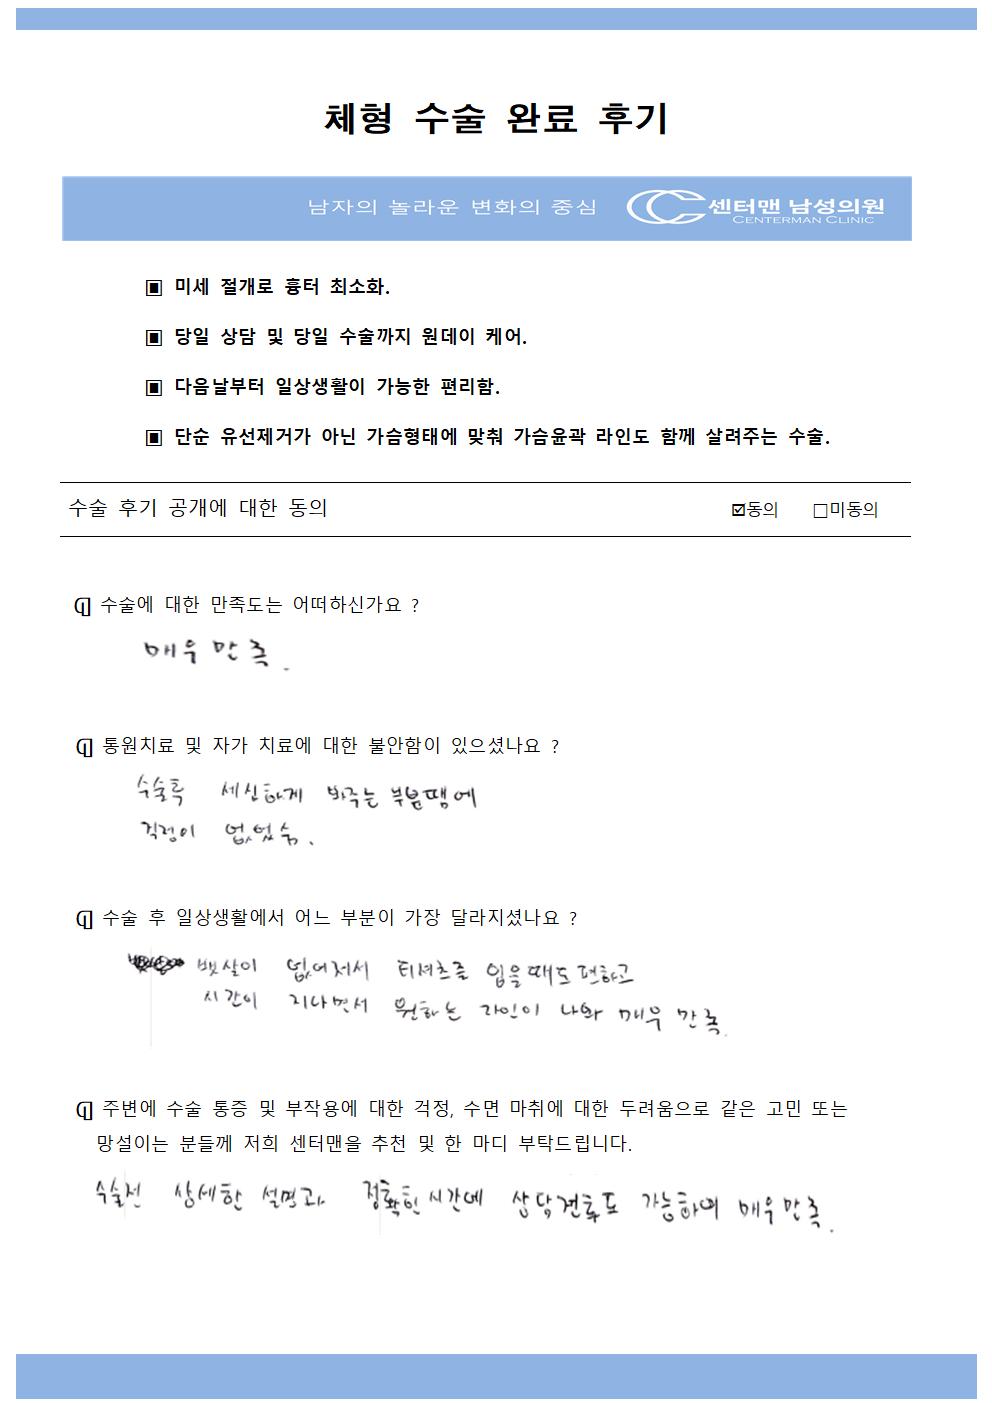 체형 수술 완료 후기
남자의 놀라운 변화의 중심 센터맨 남성의원
CENTERMAN CLINIC
▣ 미세 절개로 흉터 최소화.
▣ 당일 상담 및 당일 수술까지 원데이 케어.
▣ 다음날부터 일상생활이 가능한 편리함.
▣ 단순 유선제거가 아닌 가슴형태에 맞춰 가슴윤곽 라인도 함께 살려주는 수술.
수술 후기 공개에 대한 동의 ☑동의 □미동의
Q 수술에 대한 만족도는 어떠하신가요 ?
매우 만족.
Q 통원치료 및 자가 치료에 대한 불안함이 있으셨나요 ?
수술후 세심하게 봐주는 부분땜에
걱정이 없었슴.
Q 수술 후 일상생활에서 어느 부분이 가장 달라지셨나요 ?
뱃살이 없어져서 티셔츠를 입을때도 편하고
시간이 지나면서 원하는 라인이 나와 매우 만족.
Q 주변에 수술 통증 및 부작용에 대한 걱정, 수면 마취에 대한 두려움으로 같은 고민 또는
망설이는 분들께 저희 센터맨을 추천 및 한 마디 부탁드립니다.
수술전 상세한 설명과 정확한 시간에 상담 가능하여 매우만족.